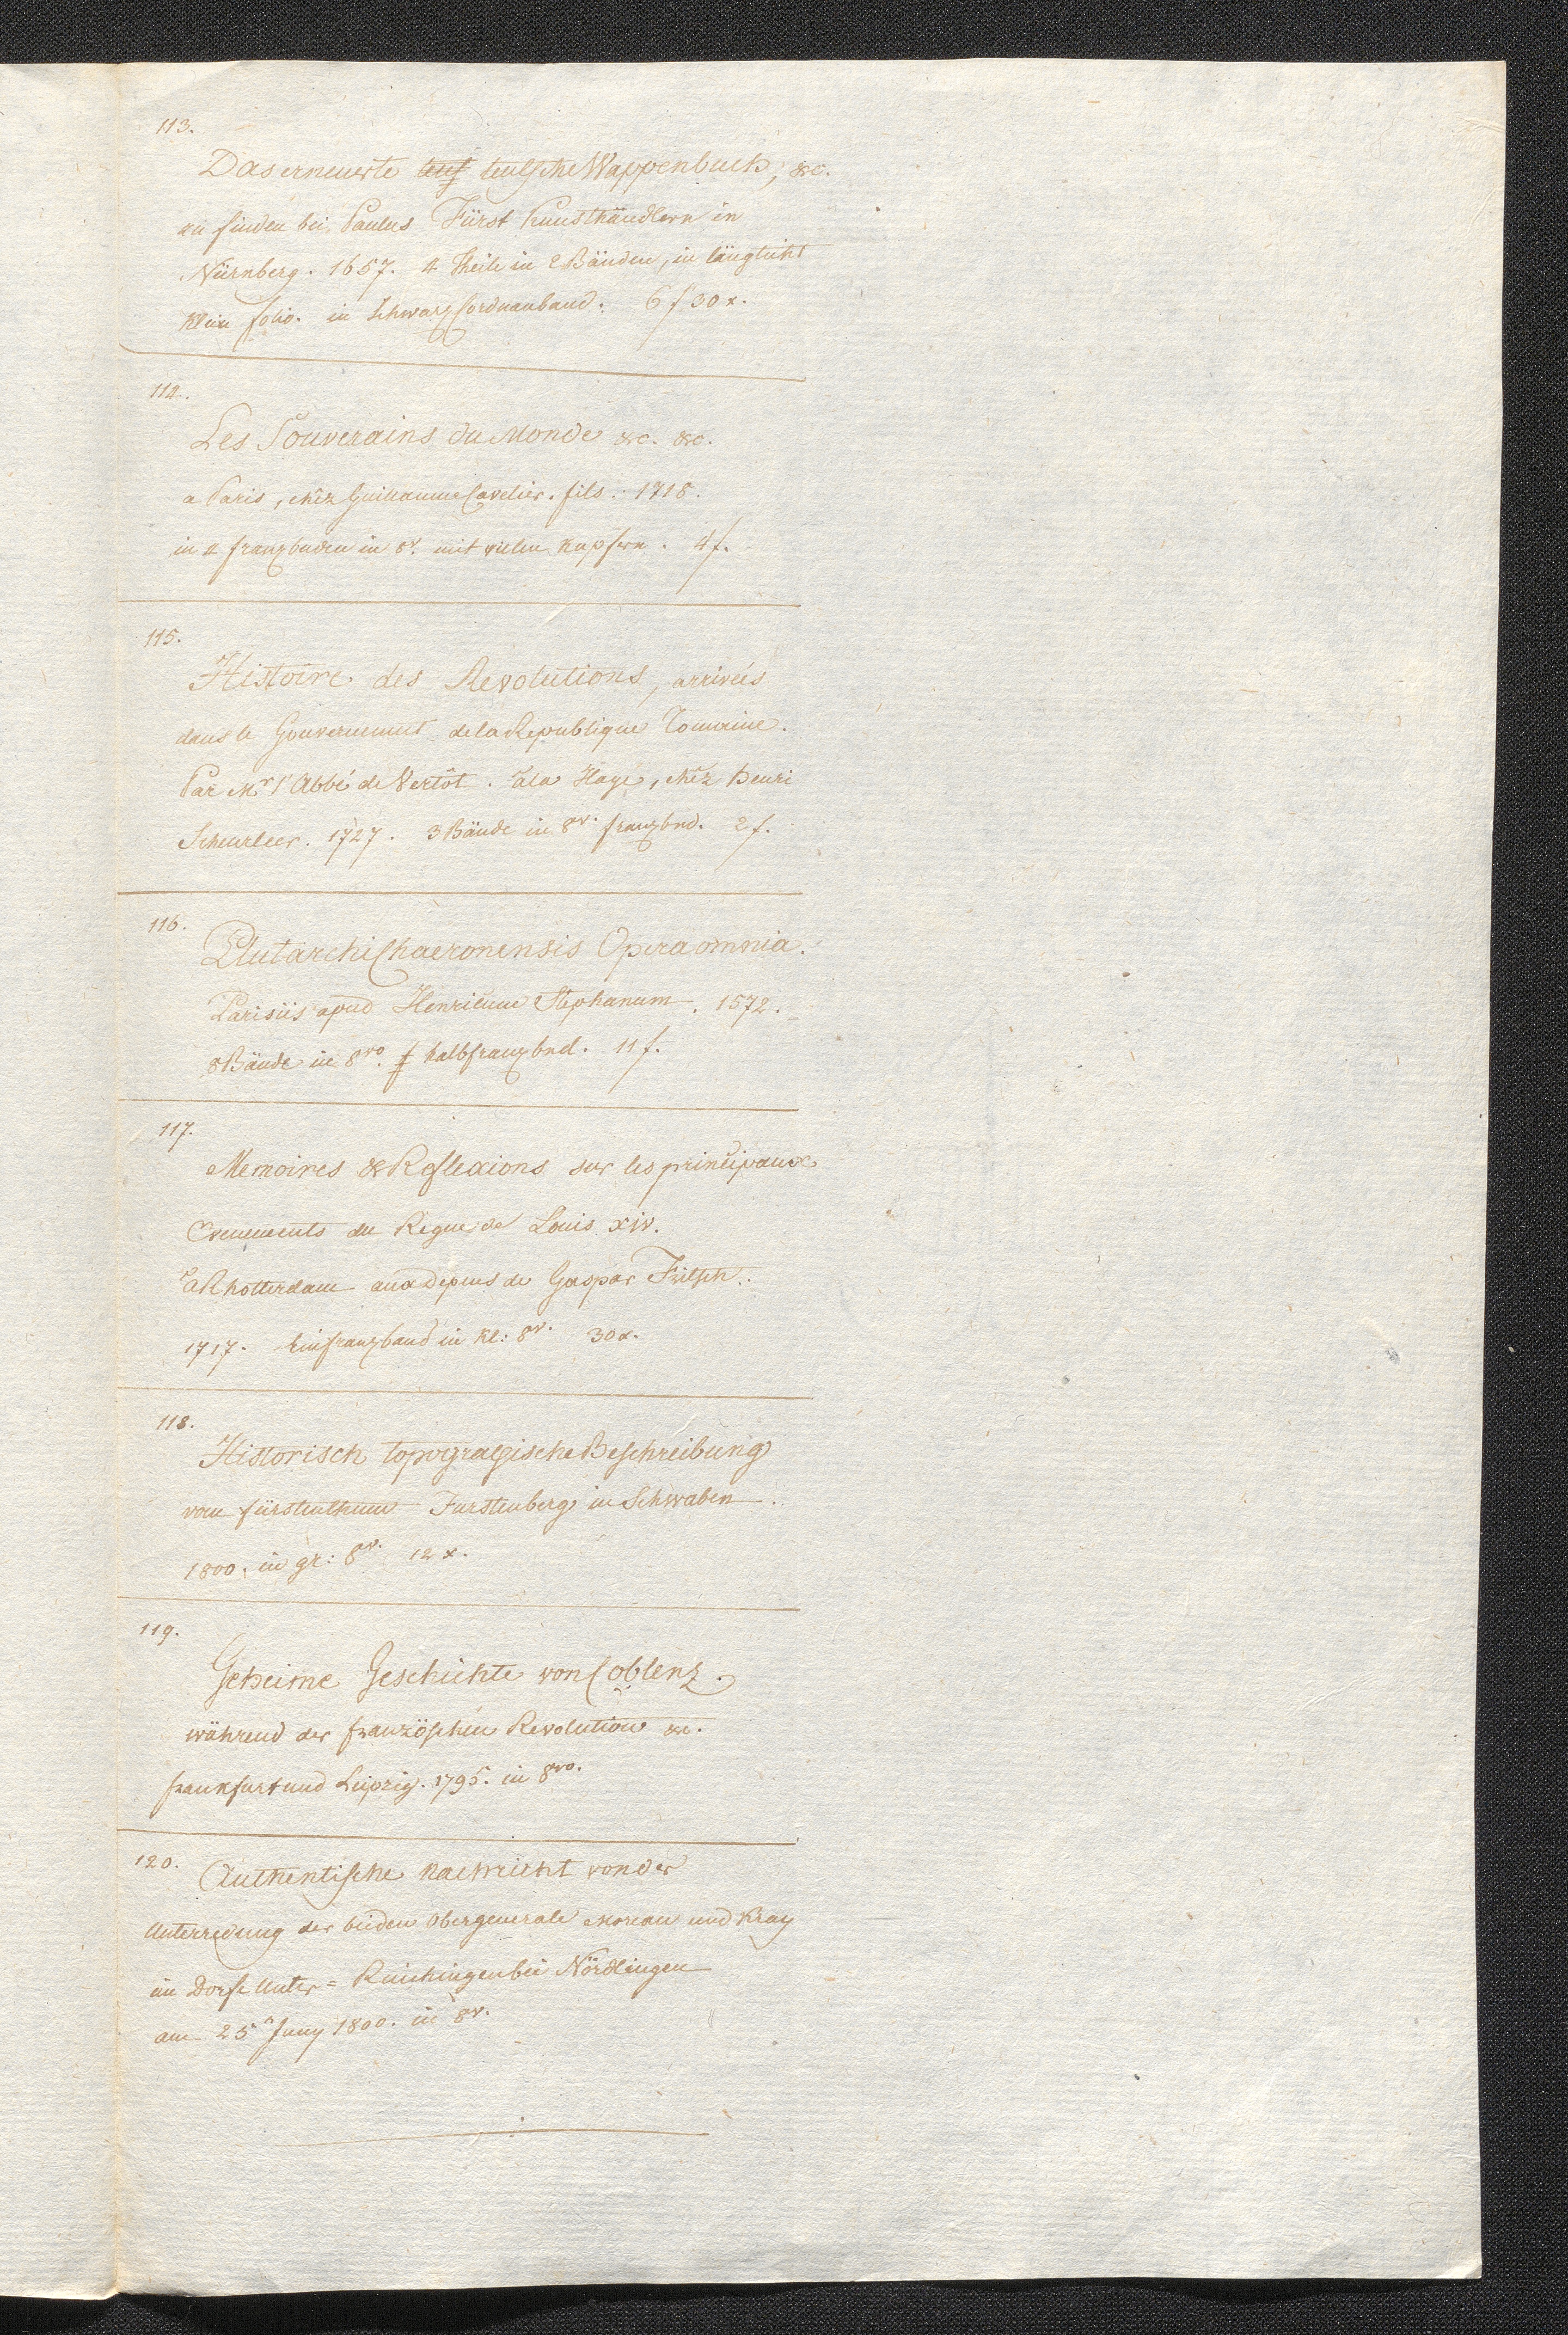 113.
Das erneuerte teutsche Wappenbuch, &c.
zu finden bei Paulus Fürst Kunsthändlern in
Nürnberg. 1657. 4 Theile in 2 Bänden, in länglicht
klein folio. in schwarz Corduanband. 6 f 30 x.
114.
Les Souverains du Monde &c. &c.
a Paris, chêz Guillaume Cavelier. fils. 1718.
in 4 franzbnden in 8v. mit vielen Kupfern. 4 f.
115.
Histoire des Revolutions, arriveés
dans le Gouvernement de la Republique Romaine.
Par Mr l'Abbé de Vertôt. à la Haye, chêz Henri
Scheurleer. 1727. 3 Bände in 8v. franzbnd. 2 f.
116.
Plutarchi Chaeronensis Opera omnia.
Parisiis apud Henricum Stephanum. 1572.
8 Bände in 8vo. halbfranzbnd. 11 f.
117.
Memoires & Reflexions sur les principaux
Evenements du Regne de Louis XIV.
à Rhotterdam aux Depens de Gaspar Fritsch.
1717. Ein franzband in kl: 8v. 30 x.
118.
Historisch topogragische Beschreibung
vom fürstenthum Furstenberg in Schwaben.
1800. in gr: 8v. 12 x.
119.
Geheime Geschichte von Coblenz.
während der französchen Revolution &c.
Frankfurt und Leipzig. 1795. in 8vo.
120.
Authentische Nachricht von der
Unterredung der beiden Obergenerale Moreau und Kray
im Dorfe Unter= bei Nördlingen
am 25n Juny 1800. in 8v.